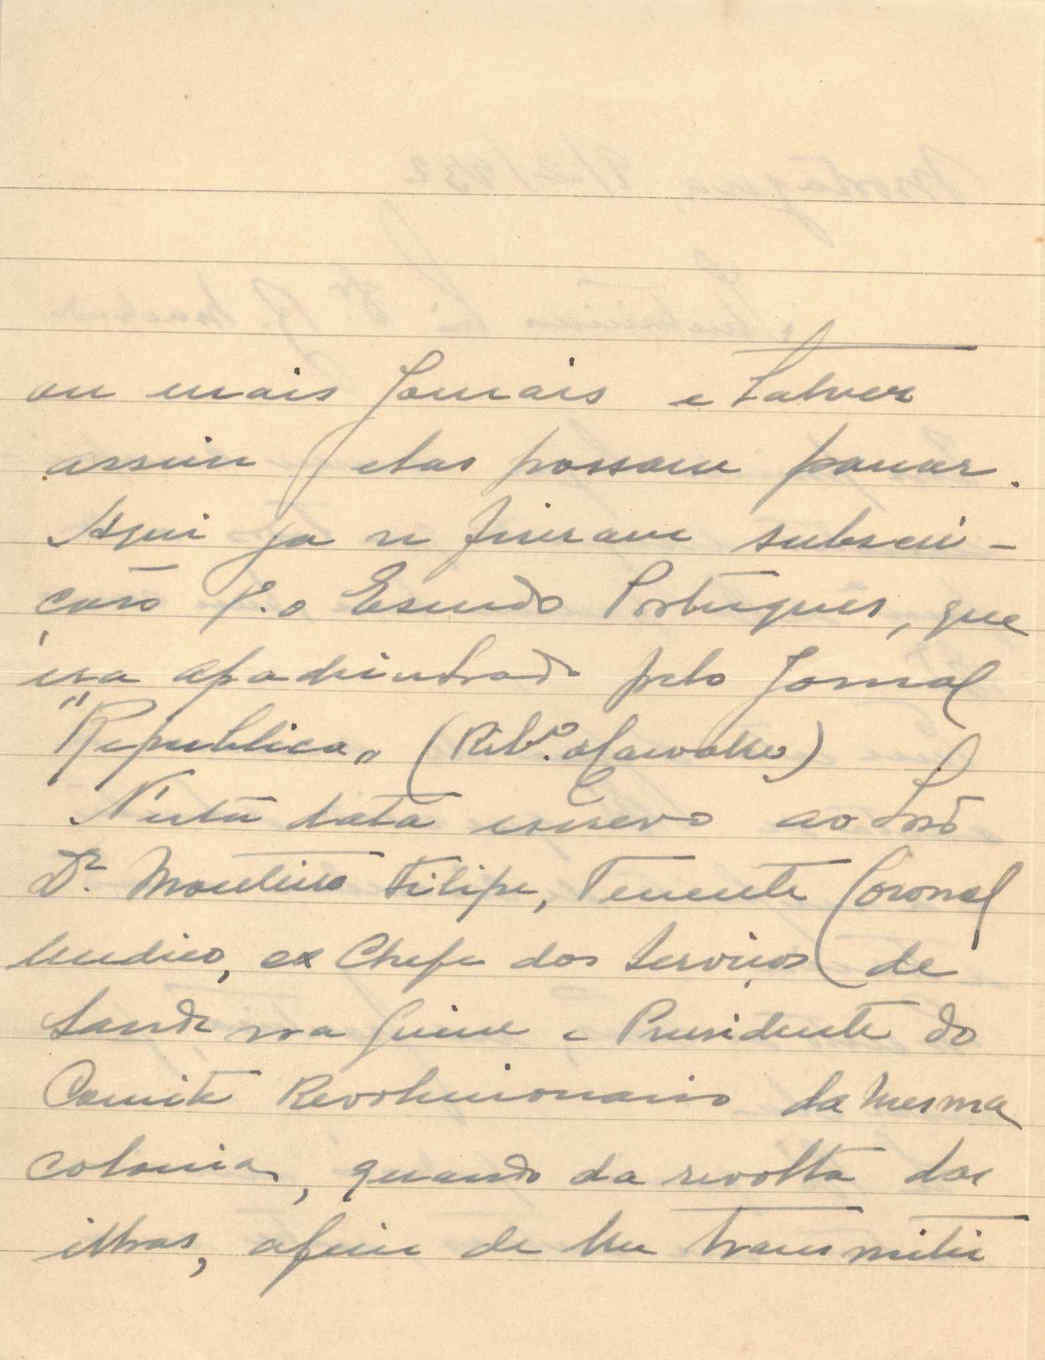 ou mais Jornais e talvez
assim elas possam passar.
Aqui ja se fizeram subscri-
ção p.a o Escudo Portugues, que
era apadrinhado pelo Jornal
"Republica" (Rib.º Carvalho)
N'esta data escrevo ao Snr
Dr. Monteiro Filipe, Tenente Coronel
Medico, ex Chefe dos Serviços de
Saude na Guine e Presidente do
Comite Revolucionario da mesma
colonia, quando da revolta das
ilhas, afim de lhe transmitir